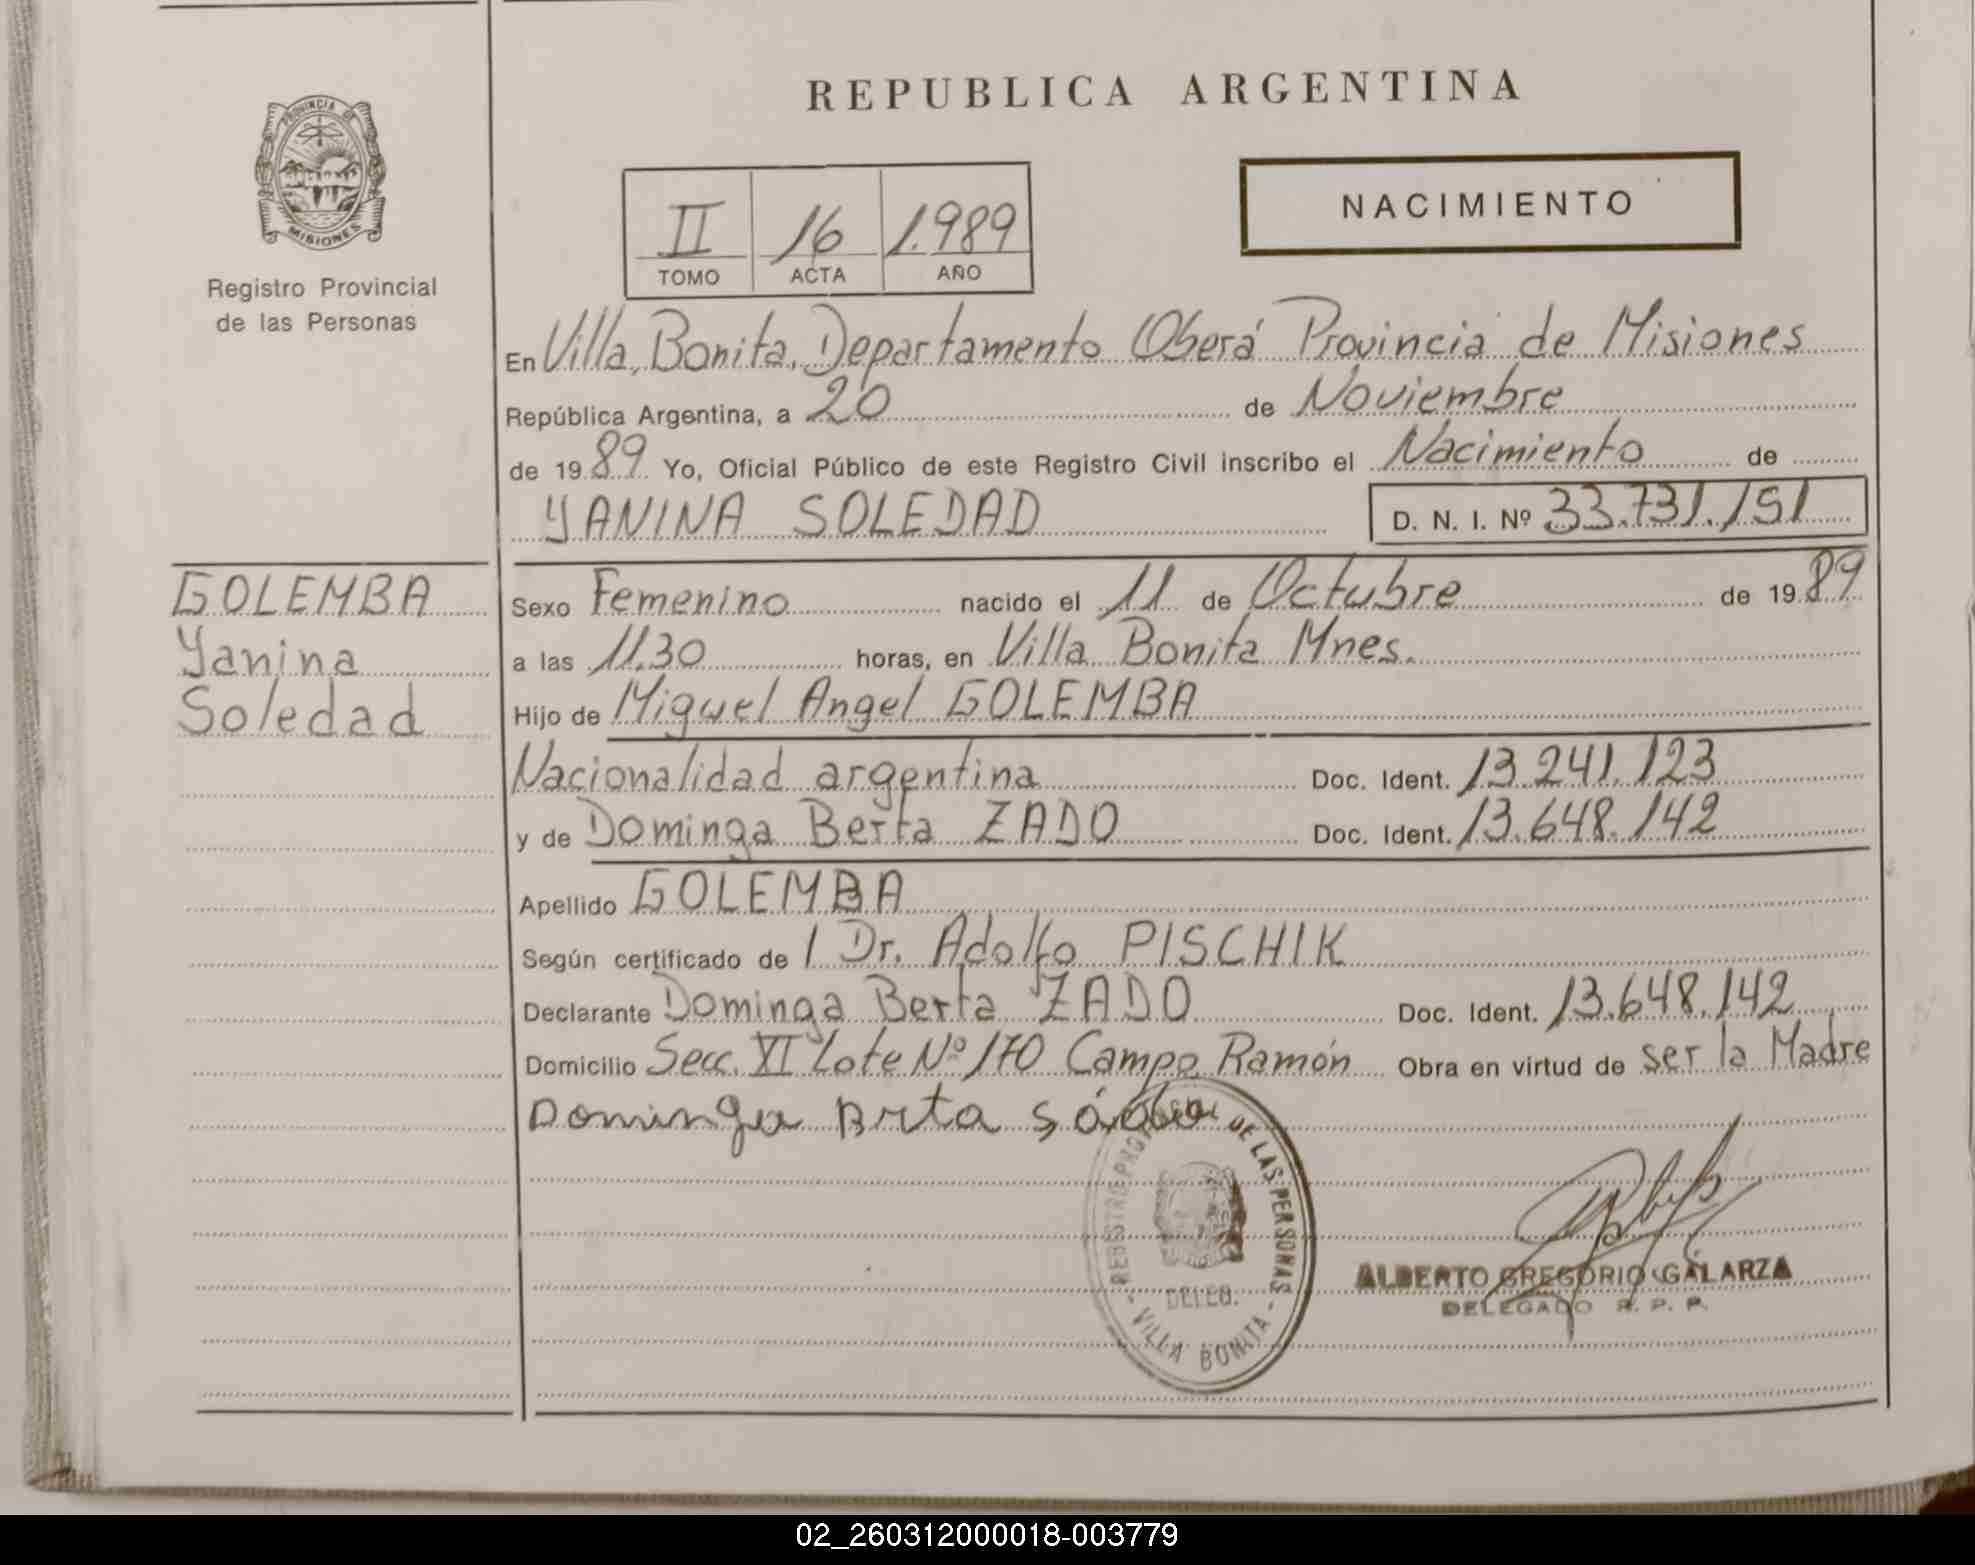 REPUBLICA ARGENTINA
PROVINCIA DE
MISIONES
Registro Provincial
de las Personas
II 16 1.989
TOMO ACTA AÑO
NACIMIENTO
En Villa Bonita, Departamento Oberá Provincia de Misiones
República Argentina, a 20 de Noviembre
de 1989 Yo, Oficial Público de este Registro Civil inscribo el Nacimiento de
YANINA SOLEDAD D. N. I. Nº 33.731.151
GOLEMBA
Yanina
Soledad
Sexo Femenino nacido el 11 de Octubre de 1989
a las 11.30 horas, en Villa Bonita Mnes.
Hijo de Miguel Angel GOLEMBA
Nacionalidad argentina Doc. Ident. 13.241.123
y de Dominga Berta ZADO Doc. Ident. 13.648.142
Apellido GOLEMBA
Según certificado de / Dr. Adolfo PISCHIK
Declarante Dominga Berta ZADO Doc. Ident. 13.648.142
Domicilio Secc. XI Lote Nº 170 Campo Ramón Obra en virtud de ser la Madre
Dominga Brta
DE LAS PERSONAS
DELEG.
- VILLA BONITA -
ALBERTO GREGORIO GALARZA
DELEGADO R. P. P.
02_260312000018-003779